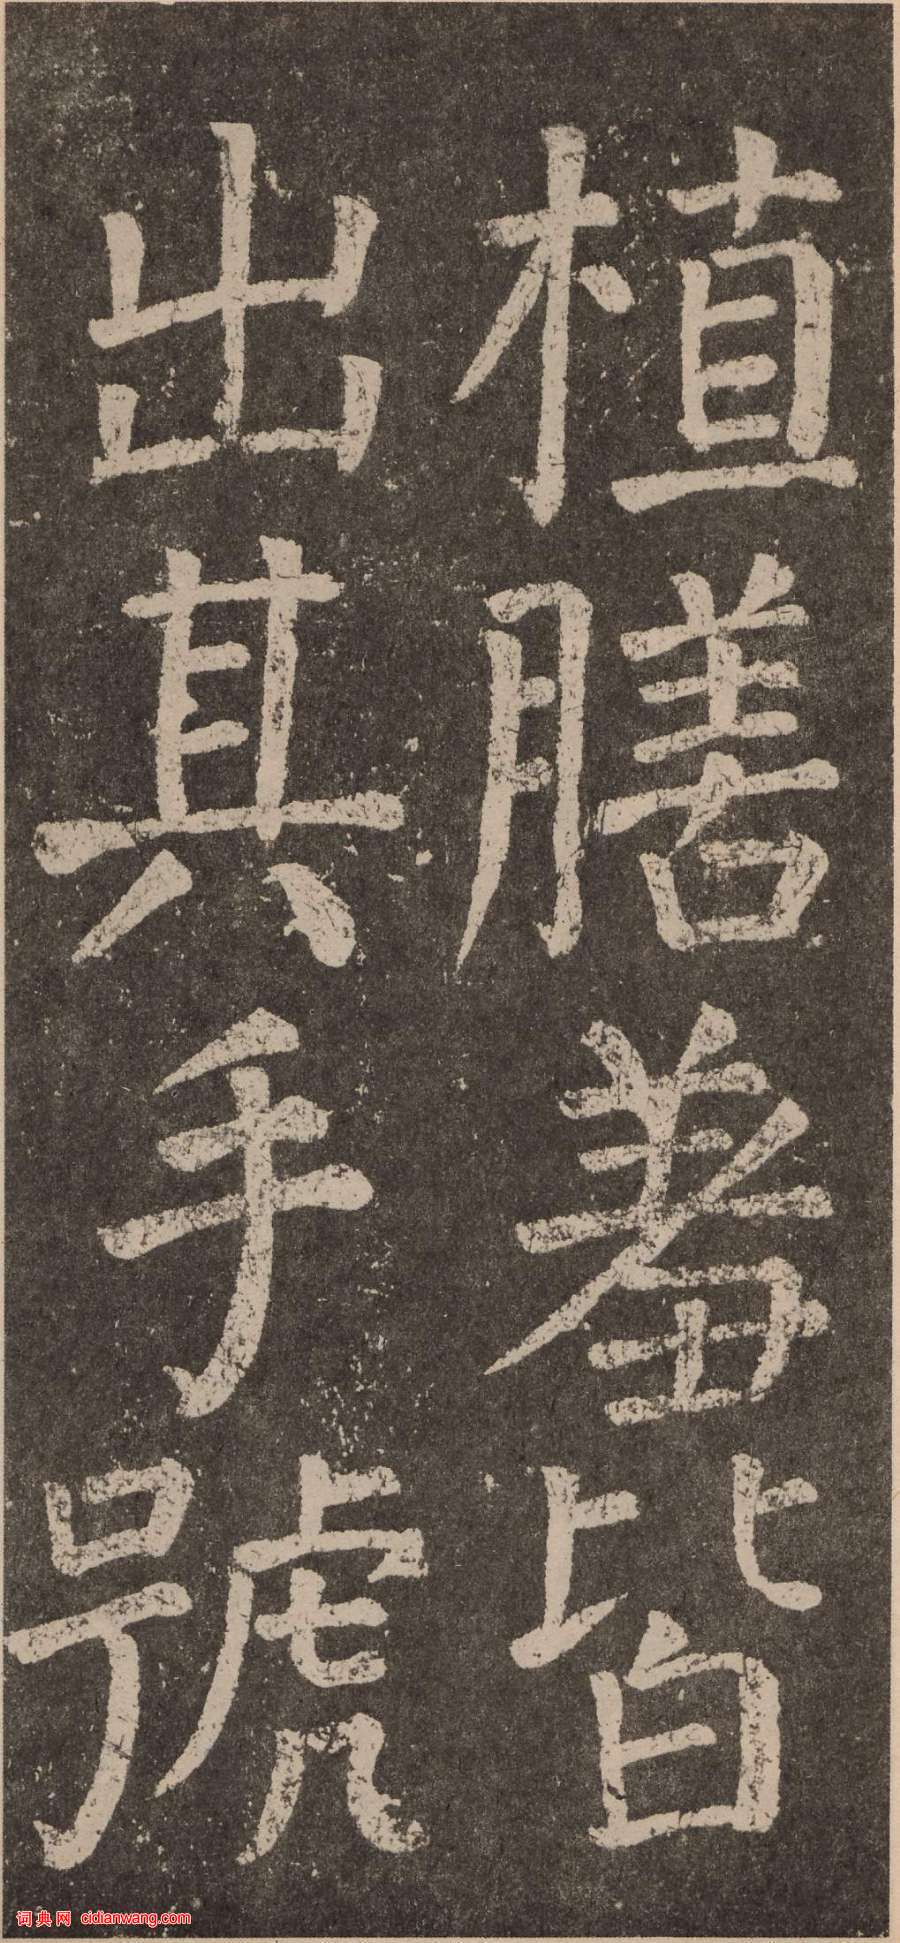 植膳羞皆
出其手號
词典网 cidianwang.com